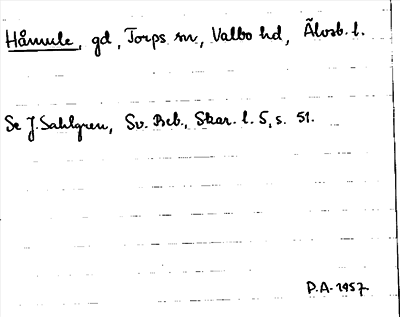 Håmule, gd, Torps sn, Valbo hd, Älvsb. l.
Se J. Sahlgren, Sv. Beb., Skar. l. 5, s. 51.
P.A. 1957